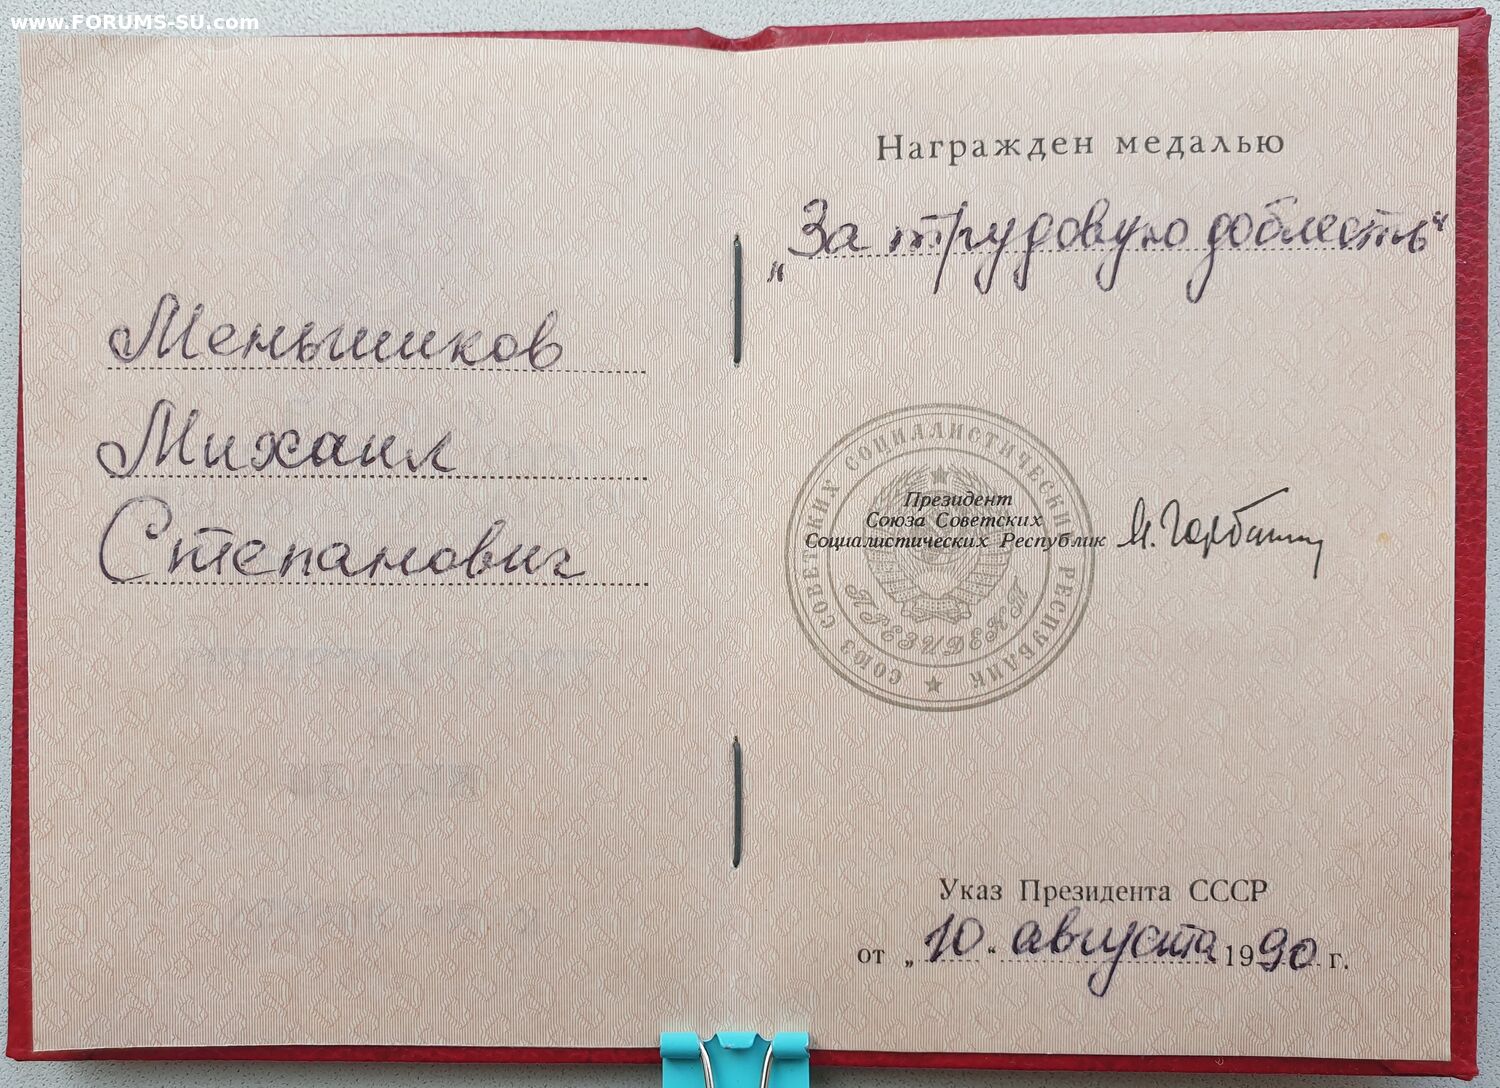 www.FORUMS-SU.com
Меньшиков
Михаил
Степанович
Награжден медалью
„За трудовую доблесть“
СОЮЗ СОВЕТСКИХ СОЦИАЛИСТИЧЕСКИХ РЕСПУБЛИК
Президент
Союза Советских
Социалистических Республик М. Горбачёв
ПРЕЗИДЕНТ
Указ Президента СССР
от „10“ августа 1990 г.